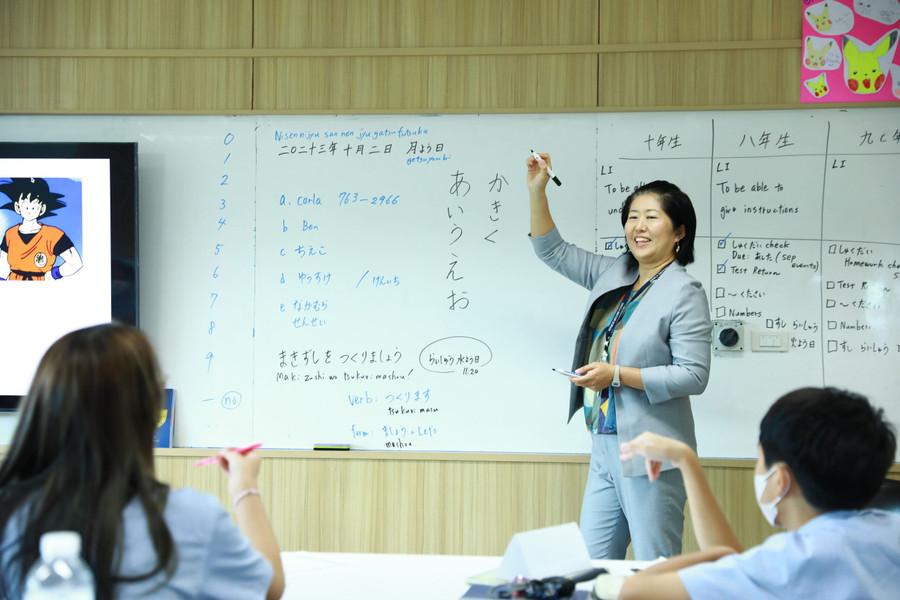 0
1
2
3
4
5
6
7
8
9
no
Nisennijyu san nen jyu gatsu futsuka
二〇二十三年 十月 二日 月よう日
getsuyoubi
a. carla 763-2966
b Ben
c ちえこ
d ゆうすけ / けんいち
e なかむら
せんせい
まきずしを つくりましょう
Maki zushi wo tsukurimashou!
らいしゅう 水よう日
11:20
verb: つくります
tsukurimasu
form: ましょう = Let's
mashou
かきく
あいうえお
十年生
LI
To be
八年生
LI
To be able to
give instructions
しゅくだい check
Due: あした (Sep events)
Test Return
〜ください
Numbers
すし らいしゅう
水よう日
九年
LI
しゅくだい
Homework
Test Return
〜ください
Numbers
すし らいしゅう